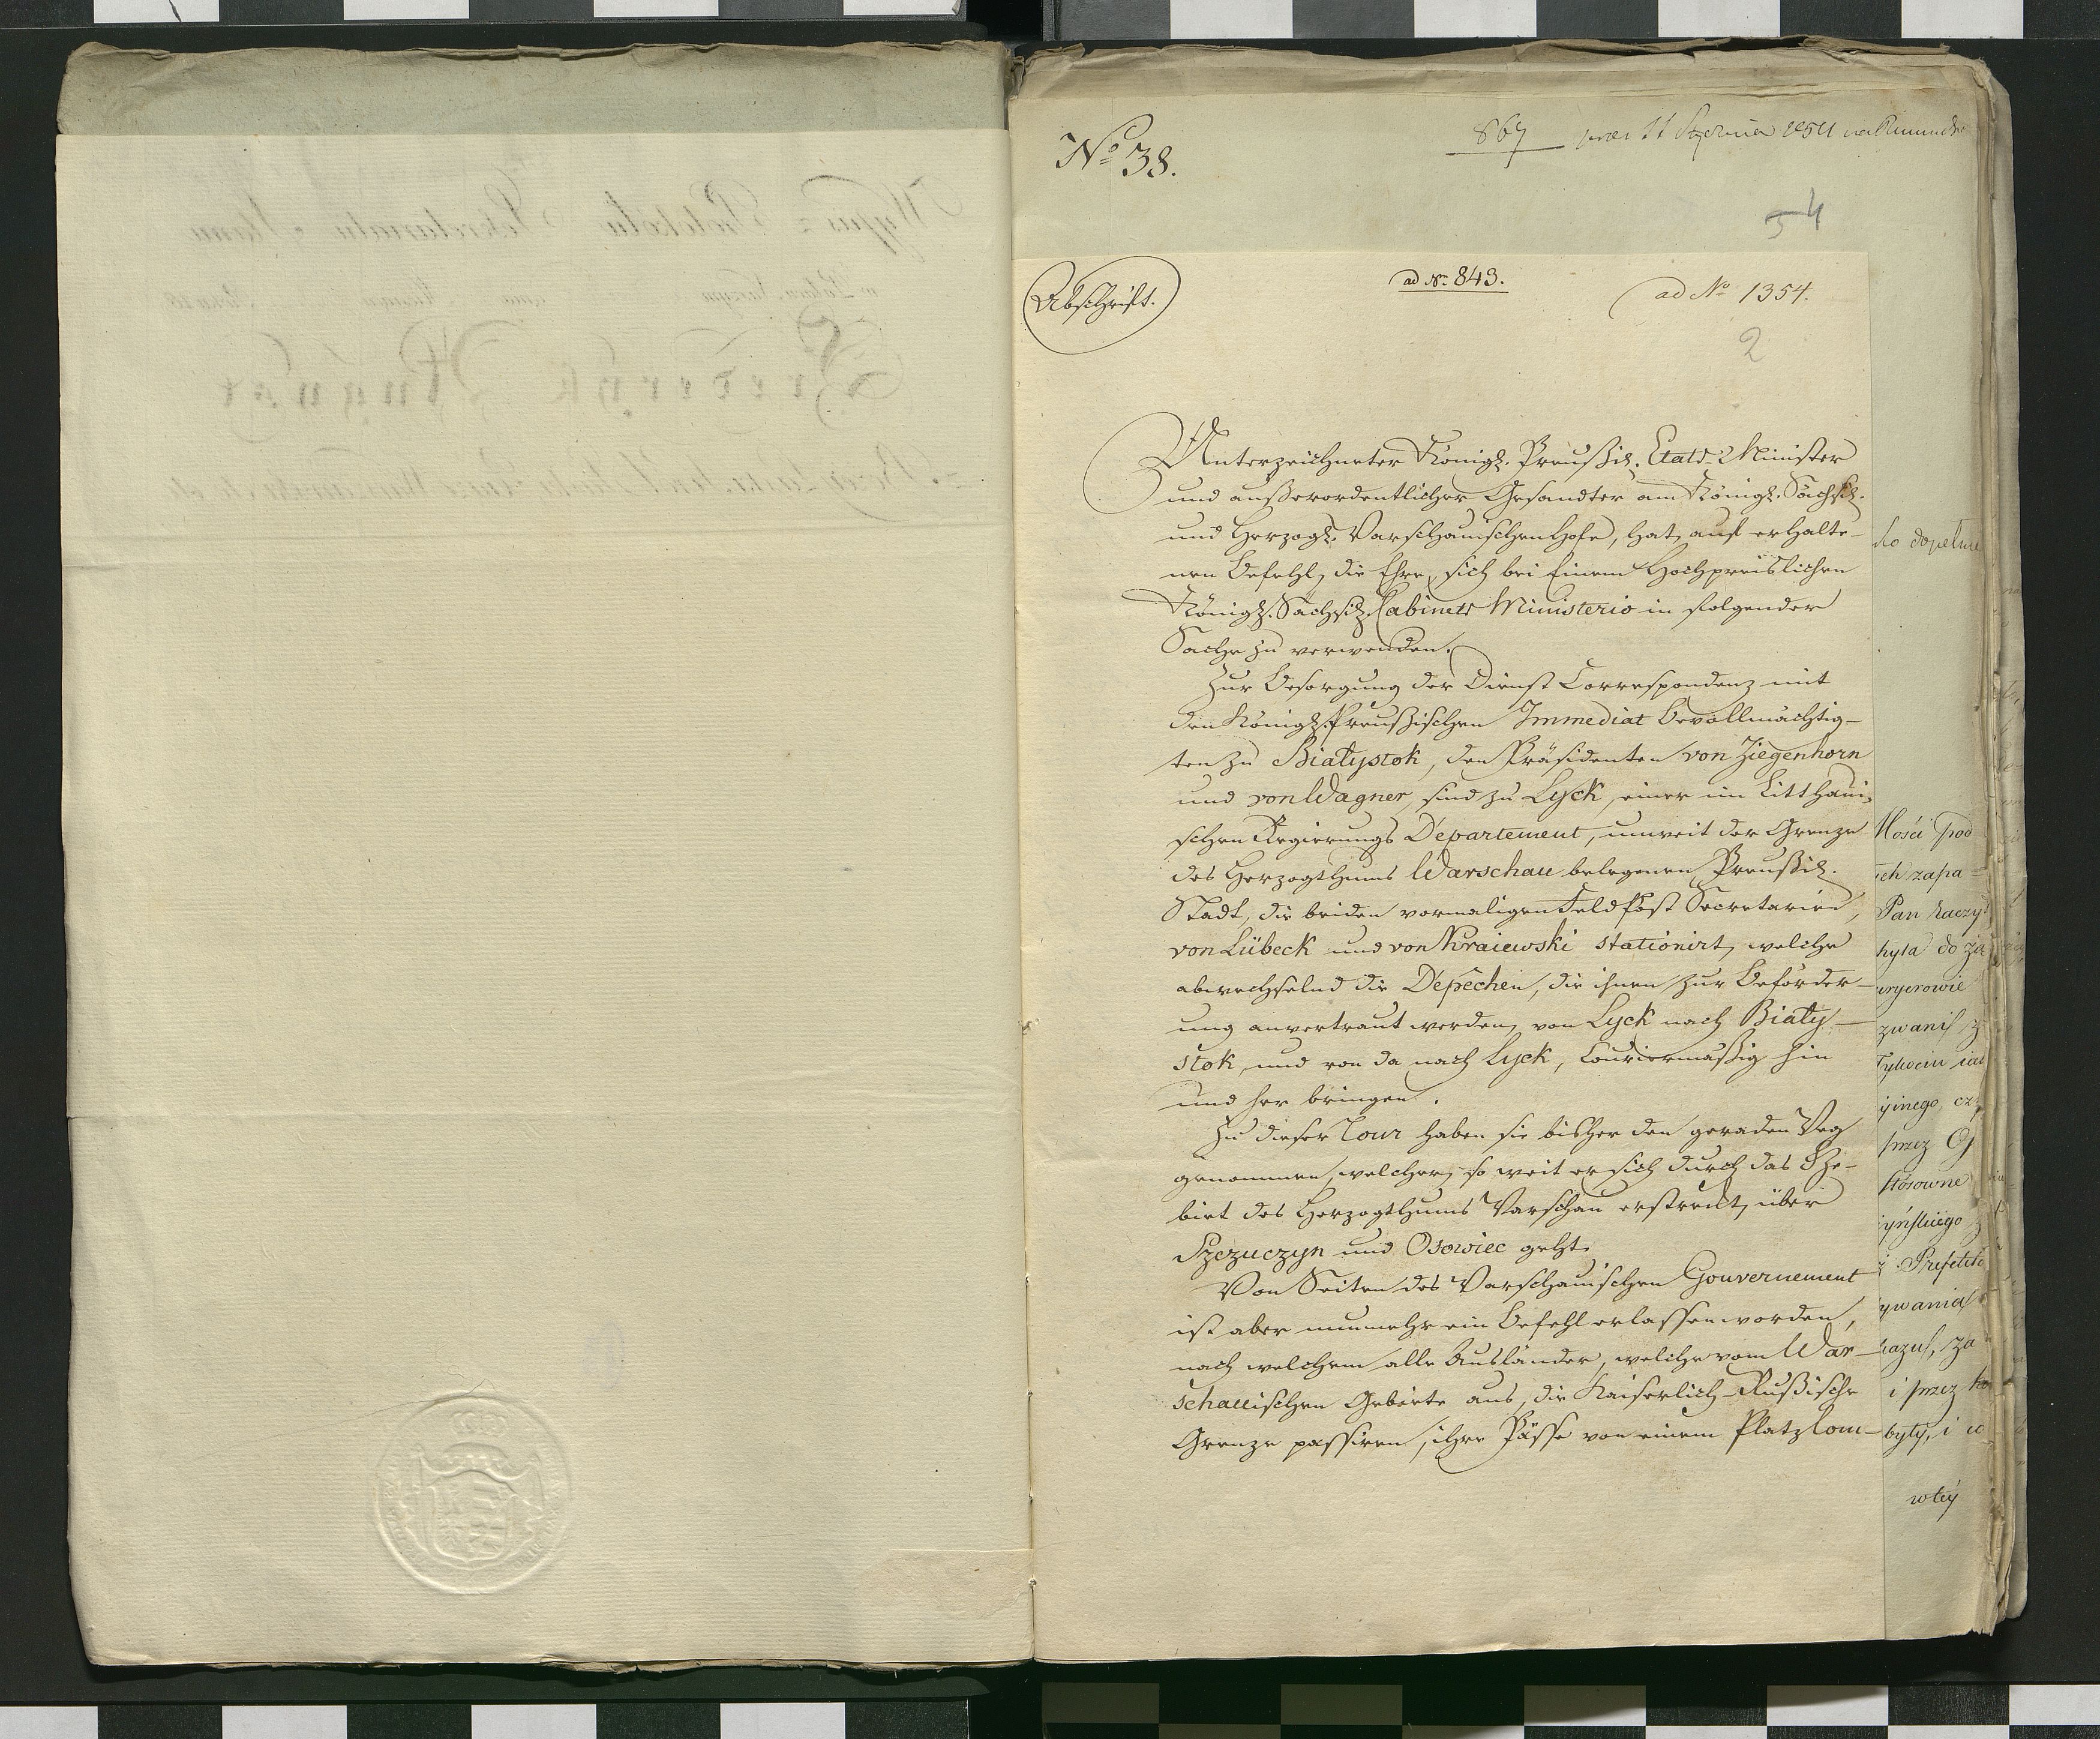 No 38.
867
54
Abschrift.
ad No 843.
ad No 1354.
2
Unterzeichneter Königl. Preußisch. Etats-Minister
und außerordentlicher Gesandter am Königl. Sächsisch.
und Herzogl. Varschauischen Hofe, hat, auf erhalte-
nen Befehl, die Ehre, sich bei Einem Hochpreislichen
Königl. Sächsisch. Cabinets Ministerio in folgender
Sache zu verwenden.
Zur Besorgung der Dienst Correspondenz mit
den Königl. Preußischen Immediat Bevollmächtig-
ten zu Białystok, den Präsidenten von Ziegenhorn
und von Wagner, sind zu Lyck, einer im Litthaui-
schen Regierungs Département, unweit der Grenze
des Herzogthums Warschau belegenen Preußisch.
Stadt, die beiden vormaligen Feldpost Secretarien,
von Lübeck und von Kraiewski stationirt, welche
abwechselnd die Dépêchen, die ihnen zur Beförder-
ung anvertraut werden, von Lyck nach Biały-
stok, und von da nach Lyck, Couriermäßig hin
und her bringen.
Zu dieser Tour haben sie bisher den geraden Weg
genommen, welcher, so weit er sich durch das Ge-
biet des Herzogthums Varschau erstreckt, über
Szczuczyn und Osowiec geht.
Von Seiten des Varschauischen Gouvernement
ist aber nunmehr ein Befehl erlassen worden,
nach welchem alle Ausländer, welche vom War-
schauischen Gebiete aus, die Kaiserlich-Rußische
Grenze passiren, ihre Pässe von einem Platz Com-
Mości pod
ich zapa=
Pan Raczy
była do za
zwanis z
przez
stosowne
Prefekt
ywania
i przez
były, i
wtey